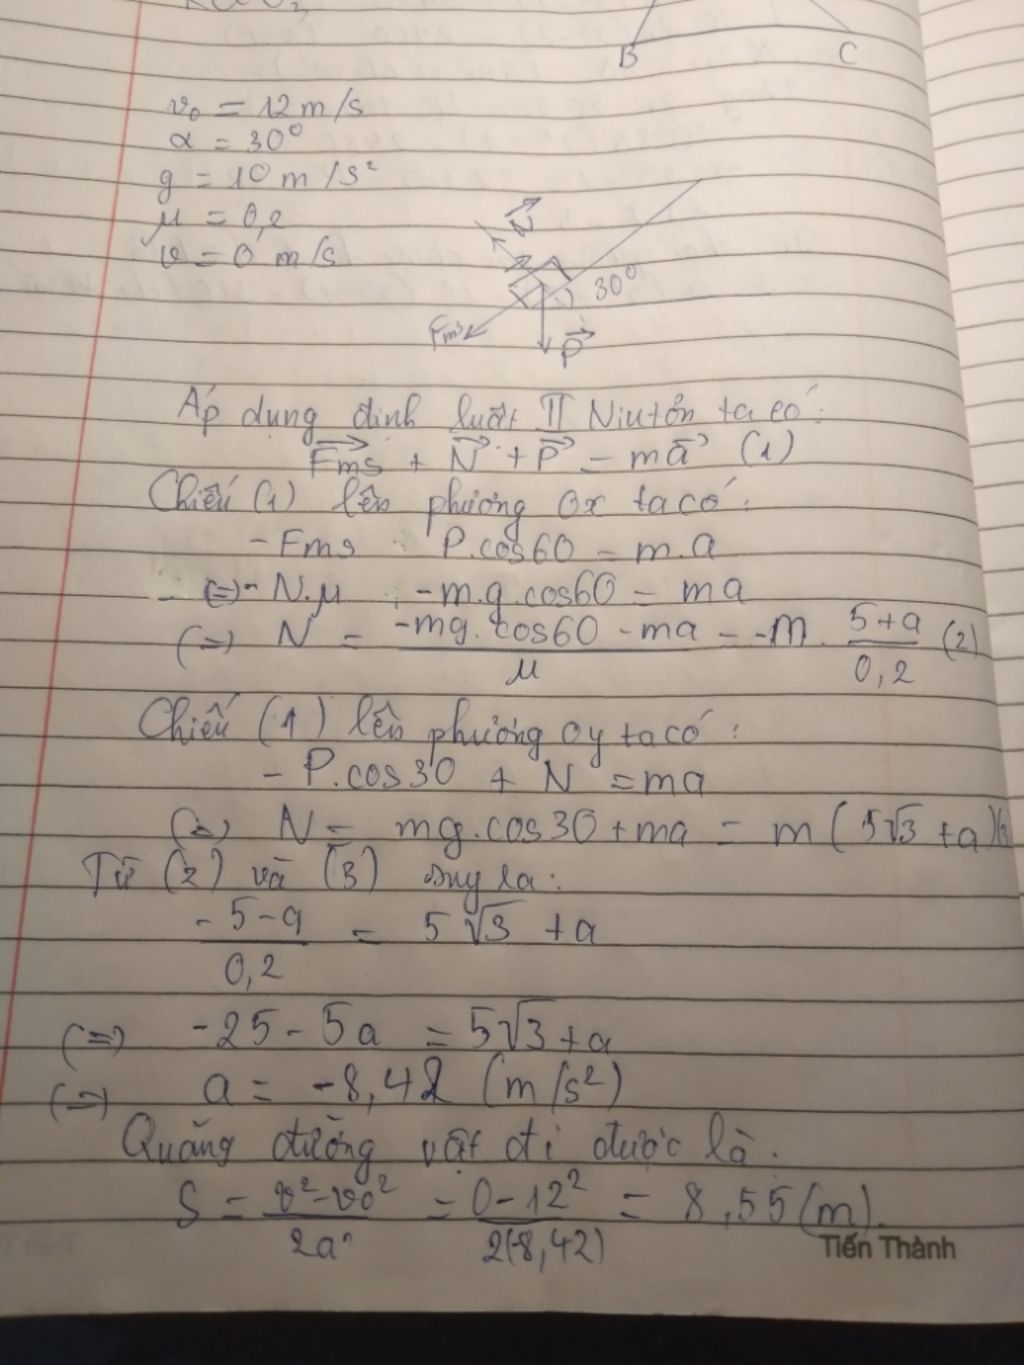 B C
v₀ = 12 m/s
α = 30°
g = 10 m/s²
μ = 0,2
v = 0 m/s
N
30°
Fms
P
Áp dụng định luật II Niutơn ta có:
Fms + N + P = ma (1)
Chiếu (1) lên phương Ox ta có:
- Fms P.cos60 = m.a
(=) - N.μ - m.g.cos60 = ma
(=) N = -mg.cos60 - ma / μ = -m. 5+a / 0,2 (2)
Chiếu (1) lên phương oy ta có:
- P.cos30 + N = ma
(=) N = mg.cos30 + ma = m(5√3 + a)(3)
Từ (2) và (3) suy ra:
-5-a / 0,2 = 5√3 + a
(=) -25 - 5a = 5√3 + a
(=) a = -8,42 (m/s²)
Quãng đường vật đi được là.
S = v² - v₀² / 2a = 0 - 12² / 2(-8,42) = 8,55 (m).
Tiến Thành